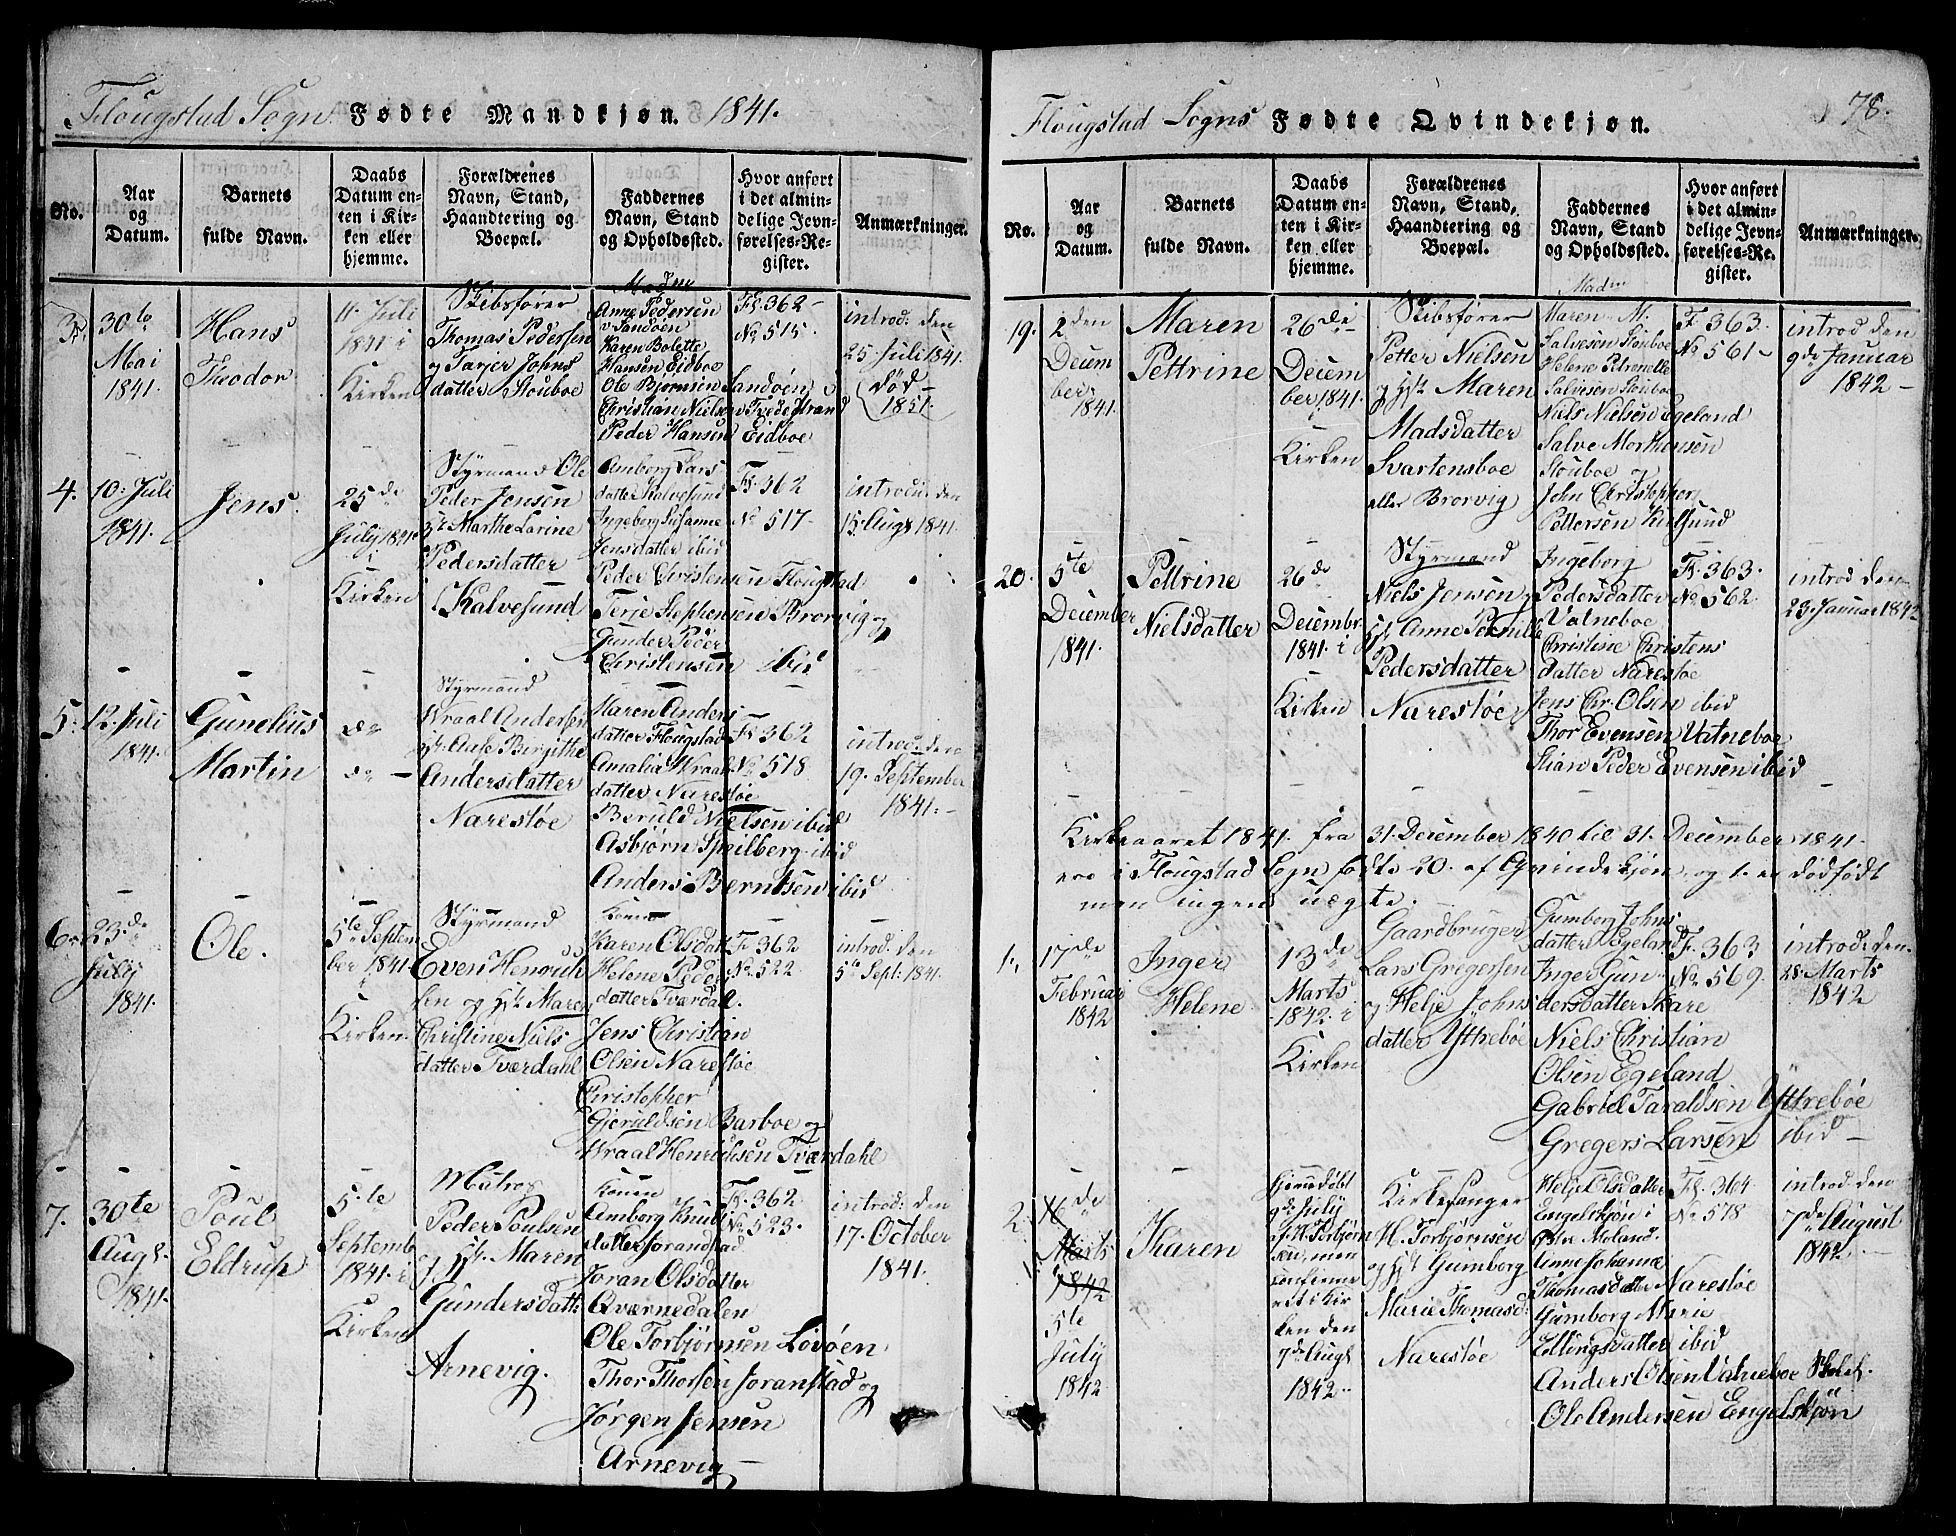 Flougstad Sogn. Fødte Mandkjøn. 1841.
No.
Aar
og
Datum.
Barnets
fulde Navn.
Daabs
Datum en-
ten i Kir-
ken eller
hjemme.
Forældrenes
Navn, Stand,
Haandtering og
Boepal.
Faddernes
Navn, Stand
og Opholdssted.
Hvor anført
i det almin-
delige Jevn-
førelses-Re-
gister.
Anmærkninger.
3.
30te
Mai
1841.
Hans
Theodor
11. Juli
1841 i
Kirken
Skibsfører
Thomas Pedersen
og Tarjer Johns
datter Stouboe
Anne Pedersen
Sandøen
Karen Bolette
Hansen Eidboe
Ole Bjørnsen Sandøen
Christian Nielsen Tvedestrand
Peder Hansen Eidboe
Fl. 362-
No 515.
introd: den
25. Juli 1841.
(død-
1851.
4.
10. Juli
1841.
Jens.
25de
July 1841
i
Kirken
Styrmand Ole
Peder Jensen
Marthe Larine
Pedersdatter
Kalvesund
Amborg Lars
datter Kalvesund
Ingeborg Susanne
Jensdatter ibid
Peder Christensen Flougstad
Terje Stephensen Brorvig og
Gunder Peder
Christensen ibid
Fl. 362
No 517.
introd: den
15. Augs 1841.
5.
12. Juli
1841.
Gunelius
Martin
do
do -
Styrmand
Wraal Andersen
Aase Birgithe
Andersdatter
Narestøe
Maren Anders
datter Flougstad
Amalia Wraals
datter Narestøe
Beruld Nielsen ibid
Asbjørn Speilberg ibid
Anders Berntsen ibid
Fl. 362
No 518
introd: den
19. September
1841. -
6.
23de
July
1841.
Ole.
5te Septem
ber 1841
i
Kirken.
Styrmand
Even Henrich
sen og Hst Maren
Christine Niels
datter Tværdahl
Konen
Karen Olsdatt
Helene Peder
datter Tværdal.
Jens Christian
Olsen Narestøe
Christopher
Gjeruldsen Barboe og
Wraal Henrichsen Tværdahl
Fl. 362
No. 522
introd: den
5te Sept: 1841.
7.
30te
Augs.
1841.
Poul
Eldrup
5te
Septemb
1841 i
Kirken
Matros
Peder Poulsen
og Hst. Maren
Gundersdatt:
Arnevig.
Konen
Amborg Knuds
datter Joranstad
Joran Olsdatter
Qværnedalen
Ole Torbjørnsen Lovøen
Thor Thorsen Joranstad og
Jørgen Jensen
Arnevig -
Fl. 362
No 523.
introd: den
17. October
1841.
Flougstad Sogns Fødte Qvindekjøn.
78.
No.
Aar
og
Datum.
Barnets
fulde Navn.
Daabs
Datum en-
ten i Kir-
ken eller
hjemme.
Forældrenes
Navn, Stand,
Haandtering og
Boepal.
Faddernes
Navn, Stand
og Opholdssted.
Hvor anført
i det almin-
delige Jevn-
førelses-Re-
gister.
Anmærkninger.
19.
2den
Decem
ber
1841.
Maren
Pettrine
26de
Decem
ber 1841.
Kirken
Skibsfører
Petter Nielsen
og Hst Maren
Madsdatter
Svartensboe
eller Brorvig
Maren M.
Salvesen Stouboe
Helene Petronelle
Salvesen Stouboe
Niels Nielsen Egeland
Salve Morthensen
Stouboe og
John Christopher
Pettersen Kalfsund
F. 363.
No 561-
introd den
9de Januar
1842 -
20.
5te
December
1841.
Pettrine
Nielsdatter
26de
Decembr.
1841. i
Kirken
Styrmand
Niels Jensen
Anne Pernille
Pedersdatter
Narestøe
Ingeborg
Pedersdatter
Vatneboe
Christine Christens
datter Narestøe
Jens Chr. Olsen ibid
Thor Evensen Vatneboe
Stian Peder Evensen ibid
Fl. 363.
No 562.
introd den
23. Januar 1842
Kirkeaaret 1841. fra 31. December 1840 til 31. December 1841.
ere i Flougstad Sogn fødte 20. af Qvindekjøn, og 1. er dødfødt
men ingen uægte.
1.
17de
Februar
1842
Inger
Helene
13de
Marts
1842. i
Kirken
Gaardbruger
Lars Gregersen
og Helje Johns
datter Yttrebøe
Gumborg Johns
datter Egeland
Inger Gun
dersdatter Skare
Niels Christian
Olsen Egeland
Gabriel Taraldsen Yttrebøe
Gregers Larsen ibid -
F. 363
No 569.
introd: den.
28. Marts
1842
2.
16de
Marts
1842
5te
July
1842
Karen
hjemmedøbt
9de July
af H. Torbjørn
sen, men
confirme
ret i Kir
ken den
7de Augs
1842.
Kirkesanger
H. Torbjørnsen
og Hst Gumborg
Marie Thomasd:
Narestøe
Helje Olsdatter
Engelskjøn i
Østre Moland.
Anne Johanne
Thomasdatter Narestøe
Gumborg Marie
Ellingsdatter ibid
Anders Olsen Vatneboe Skolel.
Ole Andersen Engelskjøn
Fl. 364.
No 578
introd den
7de August
1842. -